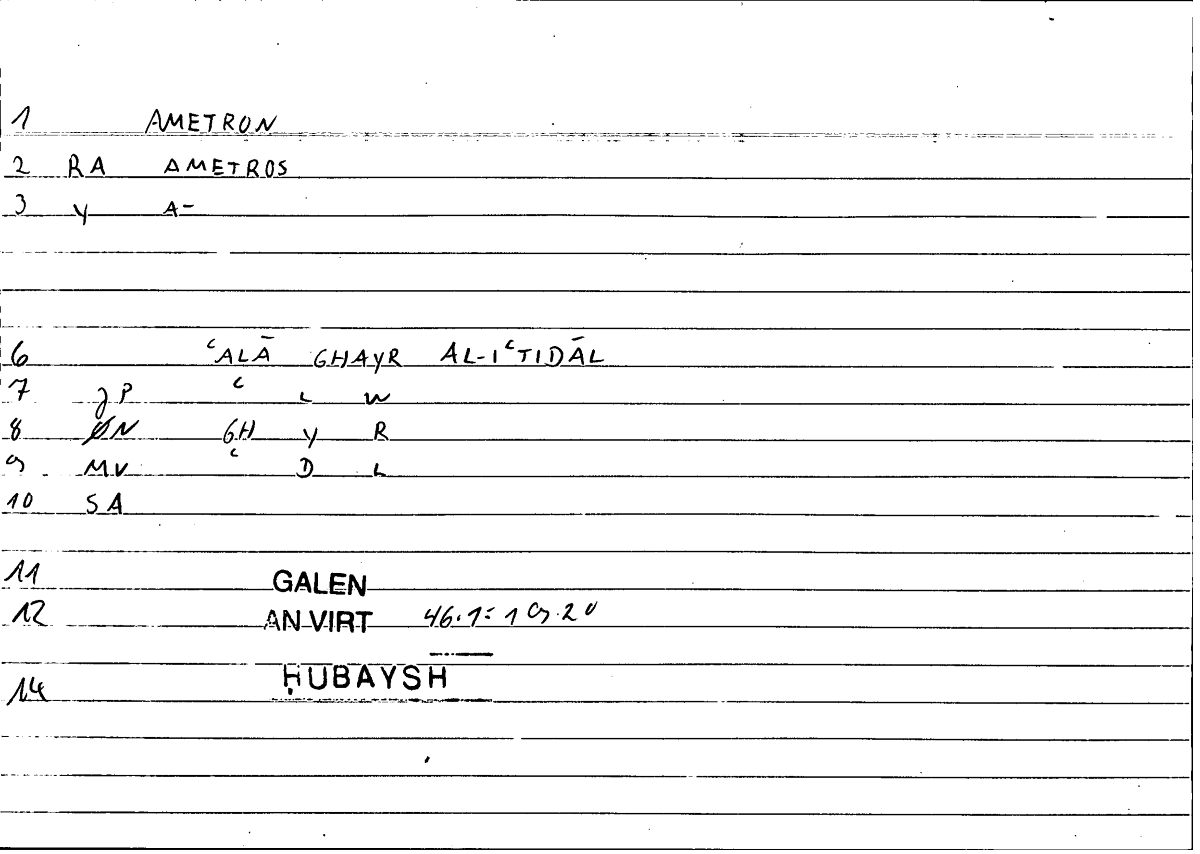 1 AMETRON
2 RA AMETROS
3 Y A-
6 ʿALĀ GHAYR AL-IʿTIDĀL
7 P ʿ L W
8 ØN GH Y R
9 MV ʿ D L
10 SA
11 GALEN
12 AN VIRT 46.7=19.20
14 ḤUBAYSH